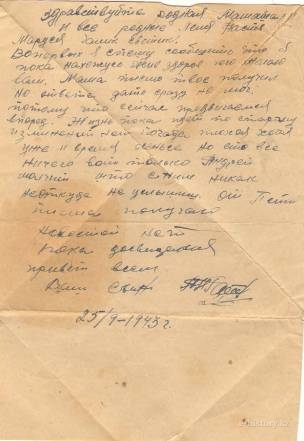 Здравствуйте родная Мамаша!!
И все родные Леня Настя
Маруся Хима общий.
Вопервых я спешу сообщить что я
пока нахожусь жив здоров чего желаю
Вам. Мама письмо твое получил
Но ответа дать сразу не мог.
потому что сейчас продвигаемся
вперед. Жизнь пока идет по старому
изменений нет Погода плохая
уже и время осенье Но это все
Ничего вот только Андрей
молчит что с Ним Никак
неоткуда не услышиш. От Пети
письма получаю
Новостей нет
Пока досвидания
привет всем
Ваш Сын
25/9-1943 г.